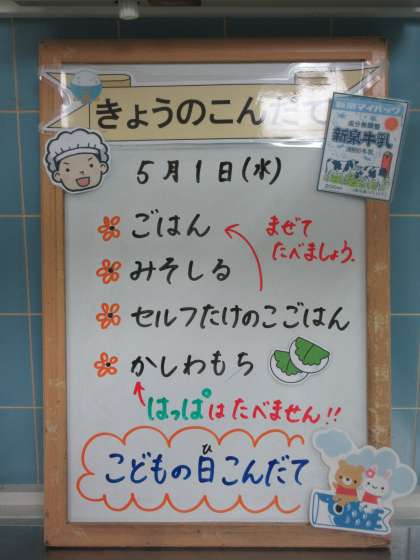 きょうのこんだて
5月1日(水)
ごはん
まぜて
たべましょう。
みそしる
セルフたけのこごはん
かしわもち
はっぱはたべません!!
こどもの日こんだて
ひ
新泉牛乳